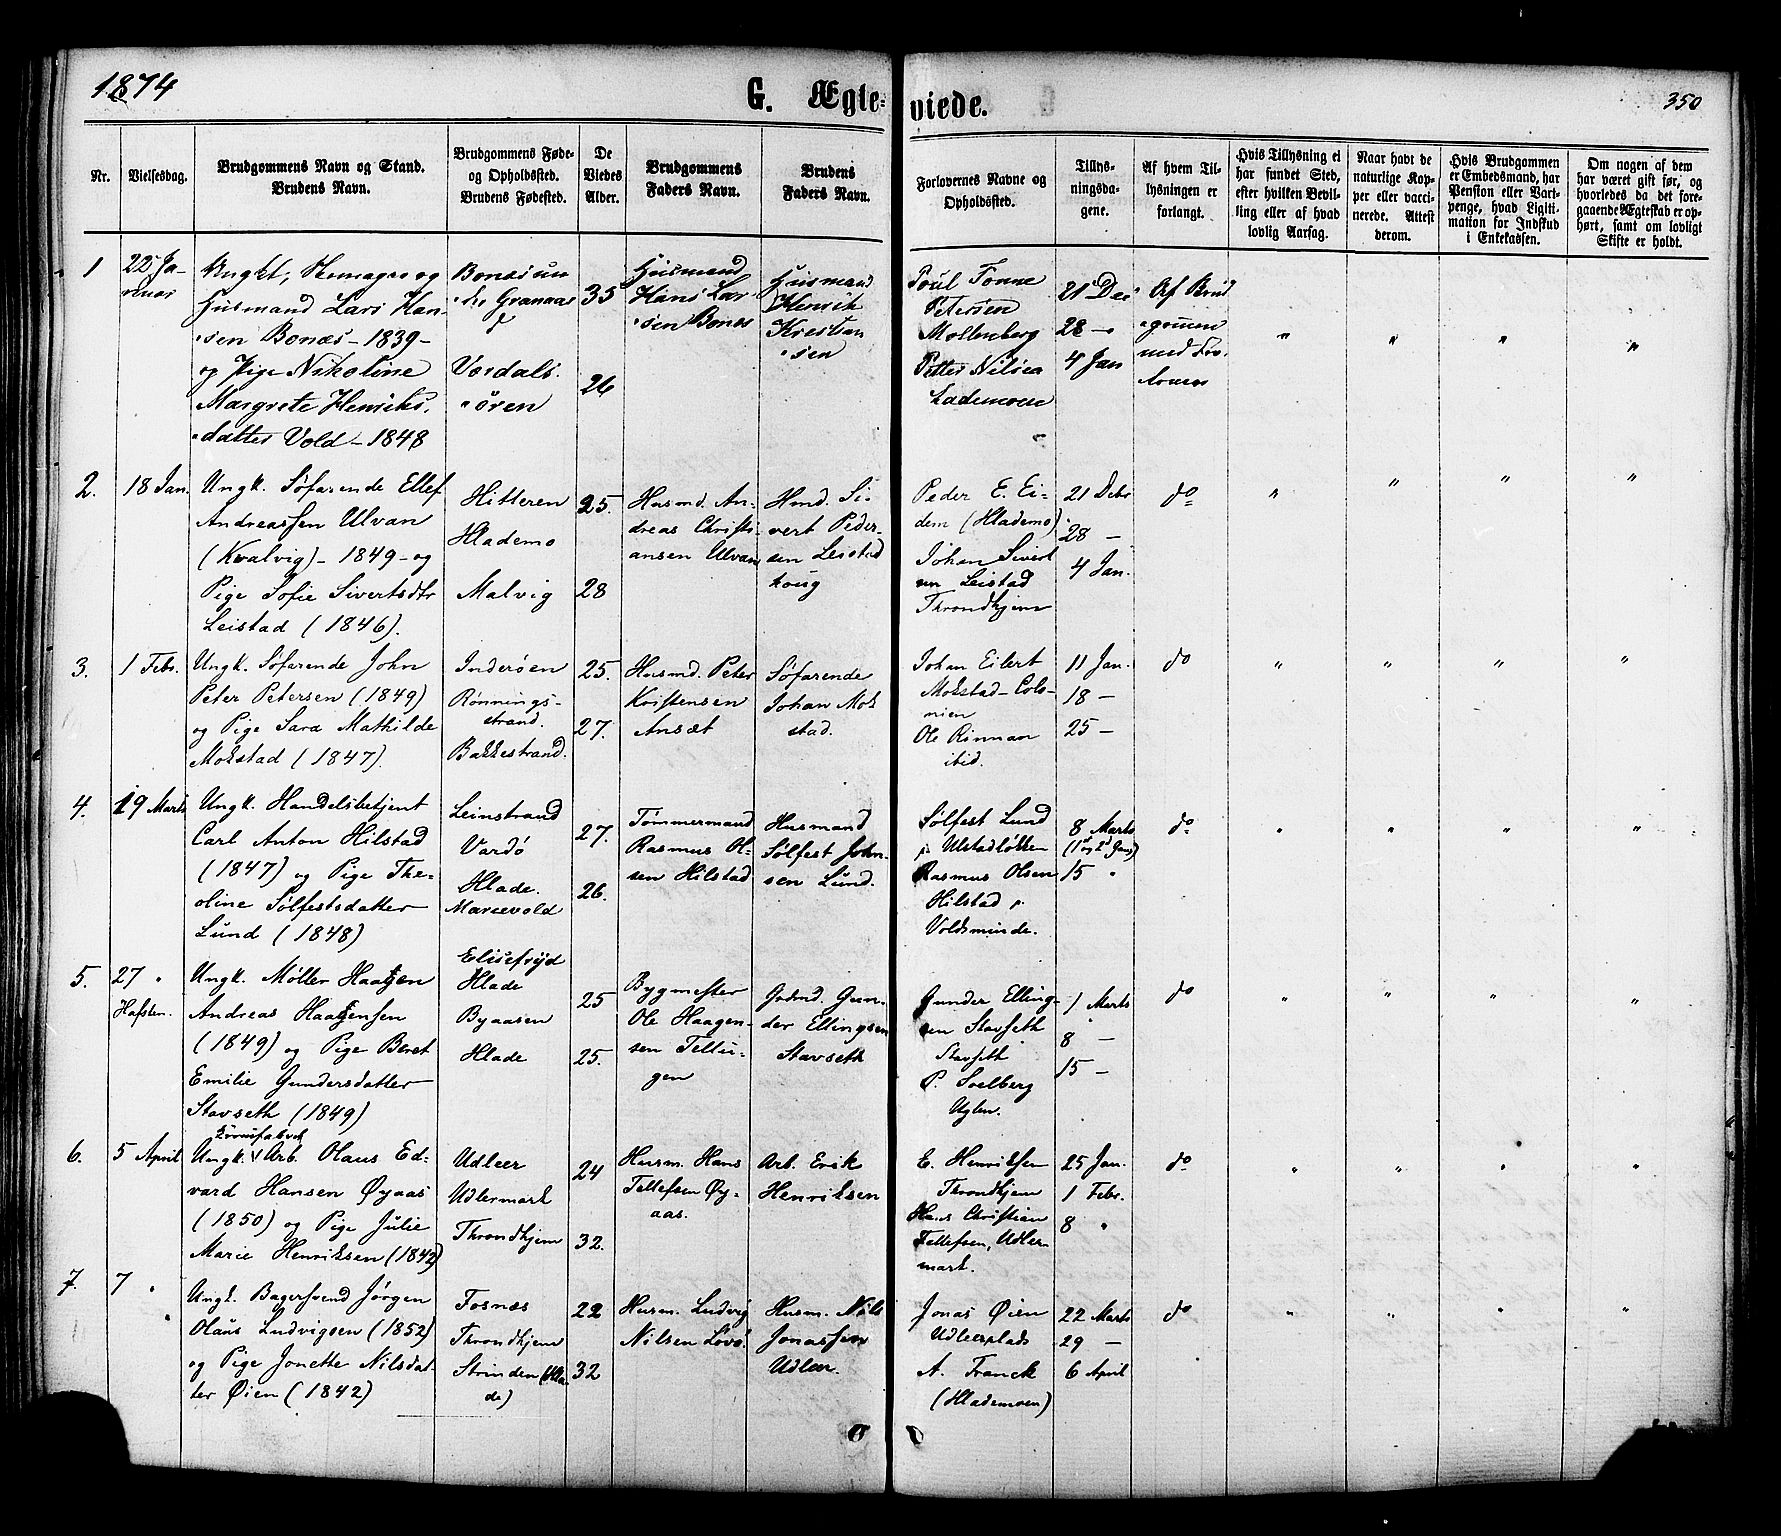 1874
G. Ægte-
viede.
350
Nr.
Vielsesdag.
Brudgommens Navn og Stand.
Brudens Navn.
Brudgommens Føde-
og Opholdssted.
Brudens Fødested.
De
Viedes
Alder.
Brudgommens
Faders Navn.
Brudens
Faders Navn.
Forlovernes Navne og
Opholdssted.
Tillys-
ningsda-
gene.
Af hvem Til-
lysningen er
forlangt.
Hvis Tillysning ei
har fundet Sted,
efter hvilken Bevil-
ling eller af hvad
lovlig Aarsag.
Naar havt de
naturlige Kop-
per eller vacci-
nerede. Attest
derom.
Hvis Brudgommen
er Embedsmand, har
Pension eller Vart-
penge, hvad Ligiti-
mation for Indskud
i Enkekassen.
Om nogen af dem
har været gift før, og
hvorledes da det fore-
gaaende Ægteskab er op-
hørt, samt om lovligt
Skifte er holdt.
1
22 Ja-
nuar
Husmand Lars Han-
sen Bonæs - 1839 -
og Pige Nikoline
Margrete Henriks.
datter Vold - 1848
Værdals.
ören
35
26
Husmand
Hans Lar-
sen Bonæs
Husmand
Henrik
Kristian
sen
Poul Tonne
Petersen
Mollenberg
Petter Nilsen
Lademoen
21 Dec
28 -
4 Jan
Af Brud
gommen
med For
lovere
"
"
"
"
2.
18 Jan.
Ungk. Söfarende Ellef
Andreassen Ulvan
(Kvalvig) - 1849 - og
Pige Sofie Sivertsdtr
Leistad (1846).
Hitteren
Hlademo
Malvig
25.
28
Husmd. An-
dreas Christi-
ansen Ulvan
Hmd. Si-
vert Peder-
sen Leistad
houg
Peder E. Ei-
dem (Hlademo)
Johan Sivert
sen Leistad
Throndhjem
21 Debr
28 -
4 Jan.
do
"
"
"
"
3.
1 Febr.
Ungk. Söfarende John
Peter Petersen (1849)
og Pige Sara Mathilde
Mokstad (1847).
Inderøen
Rønnings-
strand.
Bakkestrand.
25.
27.
Husmd. Peter
Kristensen
Ansæt
Söfarende
Johan Mok
stad.
Johan Eilert
Mokstad - Colo-
nien
Ole Rinnan
ibid.
11 Jan.
18 -
25 -
do
"
"
"
"
4.
19 Marts
Ungk. Handelsbetjent
Carl Anton Hilstad
(1847) og Pige The-
oline Sølfestsdatter
Lund (1848)
Leinstrand
Vardö
Hlade.
Marievold
27.
26.
Tømmermand
Rasmus Ol-
sen Hilstad
Husmand
Sølfest John-
sen Lund.
Sølfest Lund
p. Ulstadløkken
Rasmus Olsen
Hilstad p.
Voldsminde.
8 Marts
(1ste og 2d Gang)
15 "
do
"
"
"
"
5.
27 "
Hafsten.
Ungk. Møller Haagen
Andreas Haagensen
(1849) og Pige Beret
Emilie Gundersdatter
Stavseth (1849)
Elisefryd
Hlade
Byaasen
Hlade
25
25.
Bygmester
Ole Haagen-
sen Tellu-
gen
Grdmd. Gun-
der Ellingsen
Stavseth
Gunder Elling-
sen Stavseth
Stavseth
P. Soelberg
Uglen.
1 Marts
8 -
15 -
do
"
"
"
"
6.
5 April
Ungk. Arb. Olaus Ed-
vard Hansen Øyaas
(1850) og Pige Julie
Marie Henriksen (1842)
Udleer
Udlermark
Throndhjem
24
32.
Husm. Hans
Tellefsen Øy-
aas.
Arb. Erik
Henriksen
E. Henriksen
Throndhjem
Hans Christian
Tellefsen, Udler-
mark.
25 Jan.
1 Febr.
8 "
do
"
"
"
"
7.
7 "
"
Ungk. Bagersvend Jørgen
Olaus Ludvigsen (1852)
og Pige Jonette Nilsdat-
ter Øien (1842)
Fosnæs
Throndhjem
Strinden (Hla-
de)
22
32
Husm. Ludvig
Nilsen Lövö.
Husm. Nils
Jonassen
Udleer.
Jonas Øien
Udleerplads
A. Franck
(Hlademoen)
22 Marts
29 -
6 April
do
"
"
"
"